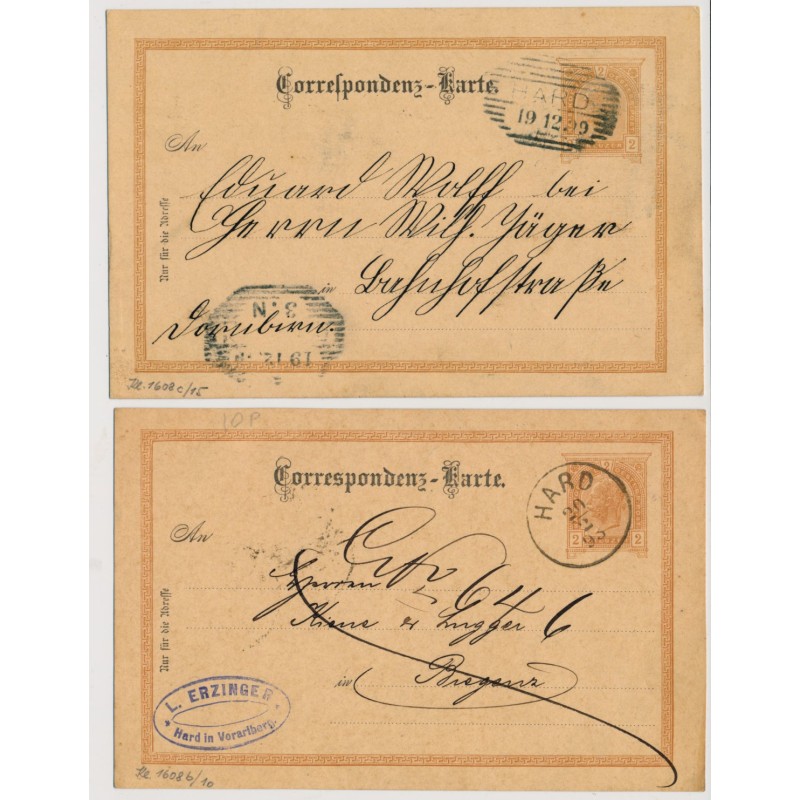 2
Correſpondenz-Karte.
HARD
19 12 99
2
An
Eduard Wolff bei
Herrn Wilh. Jäger
Nur für die Adresse
in Bahnhofstraße
3. N
Dornbirn.
19 12
Kl. 1608c/15
10P
Correspondenz-Karte.
HARD
2 2
An
Herren
646
Nur für die Adresse
in Bregenz
L. ERZINGER
Hard in Vorarlberg.
Kl. 1608b/10